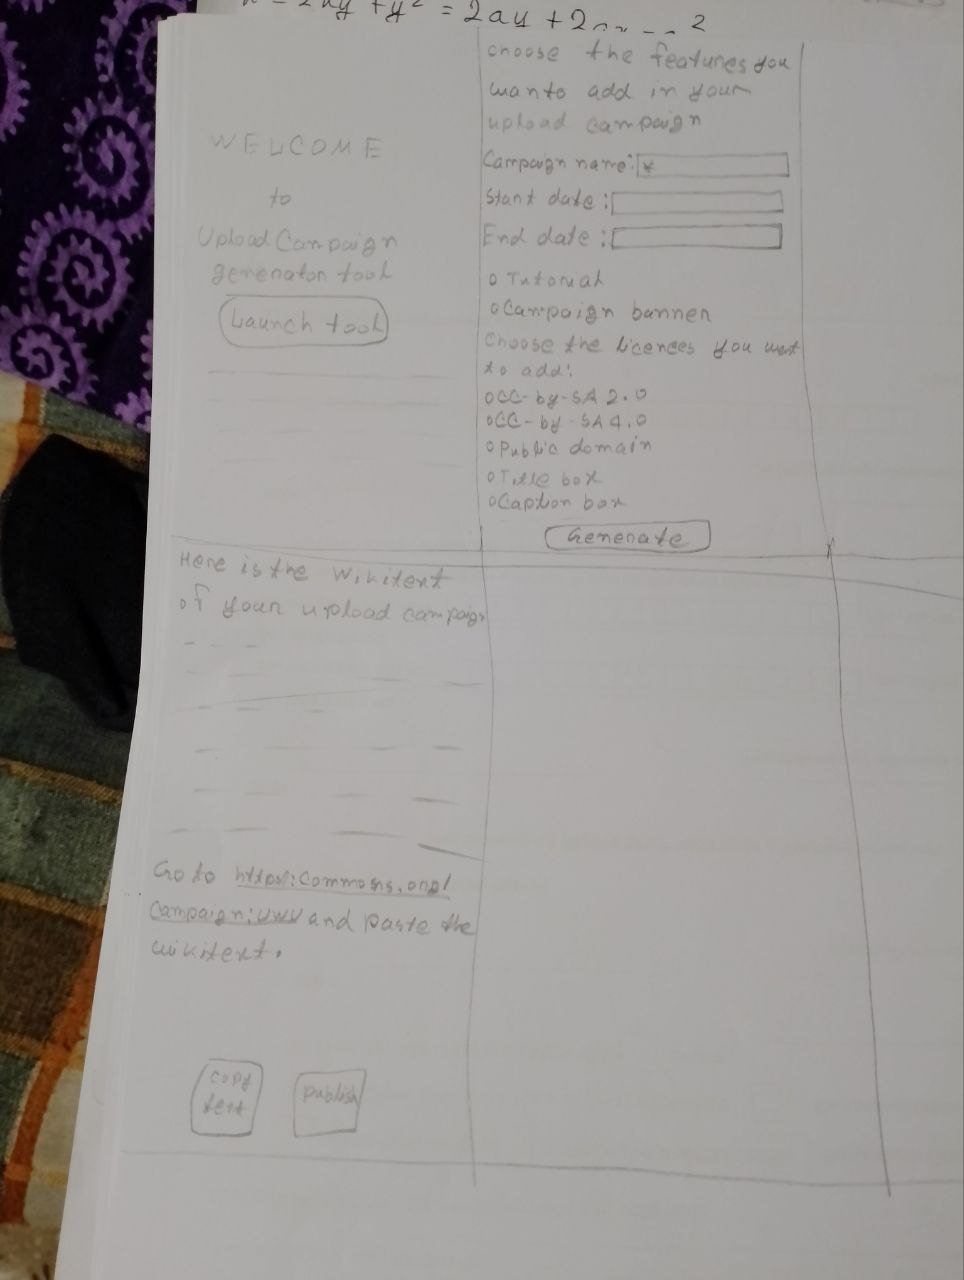 = 2au + 2
WELCOME
to
Upload Campaign
generator tool
Launch tool
choose the features you
wanto add in your
upload campaign
Campaign name: *
Start date:
End date:
o Tutorial
o Campaign banner
Choose the licences you want
to add:
o CC-by-SA 2.0
o CC-by-SA 4.0
o Public domain
o Title box
o Caption box
Generate
Here is the Wikitext
of your upload campaign
Go to https:commons.org/
Campaign:UWU and paste the
wikitext.
copy
text
publish